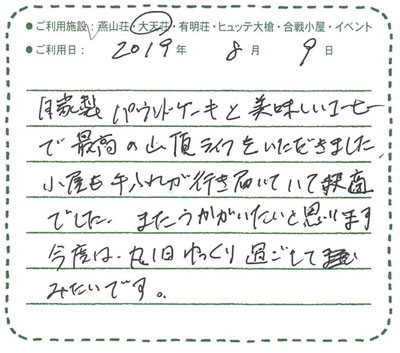 ●ご利用施設：燕山荘・大天荘・有明荘・ヒュッテ大槍・合戦小屋・イベント
●ご利用日： 2019 年 8 月 9 日
自家製パウンドケーキと美味しいコーヒー
で最高の山頂ライフをいただきました。
小屋も手入れが行き届いていて快適
でした。またうかがいたいと思います
今度は、丸1日ゆっくり過ごして
みたいです。